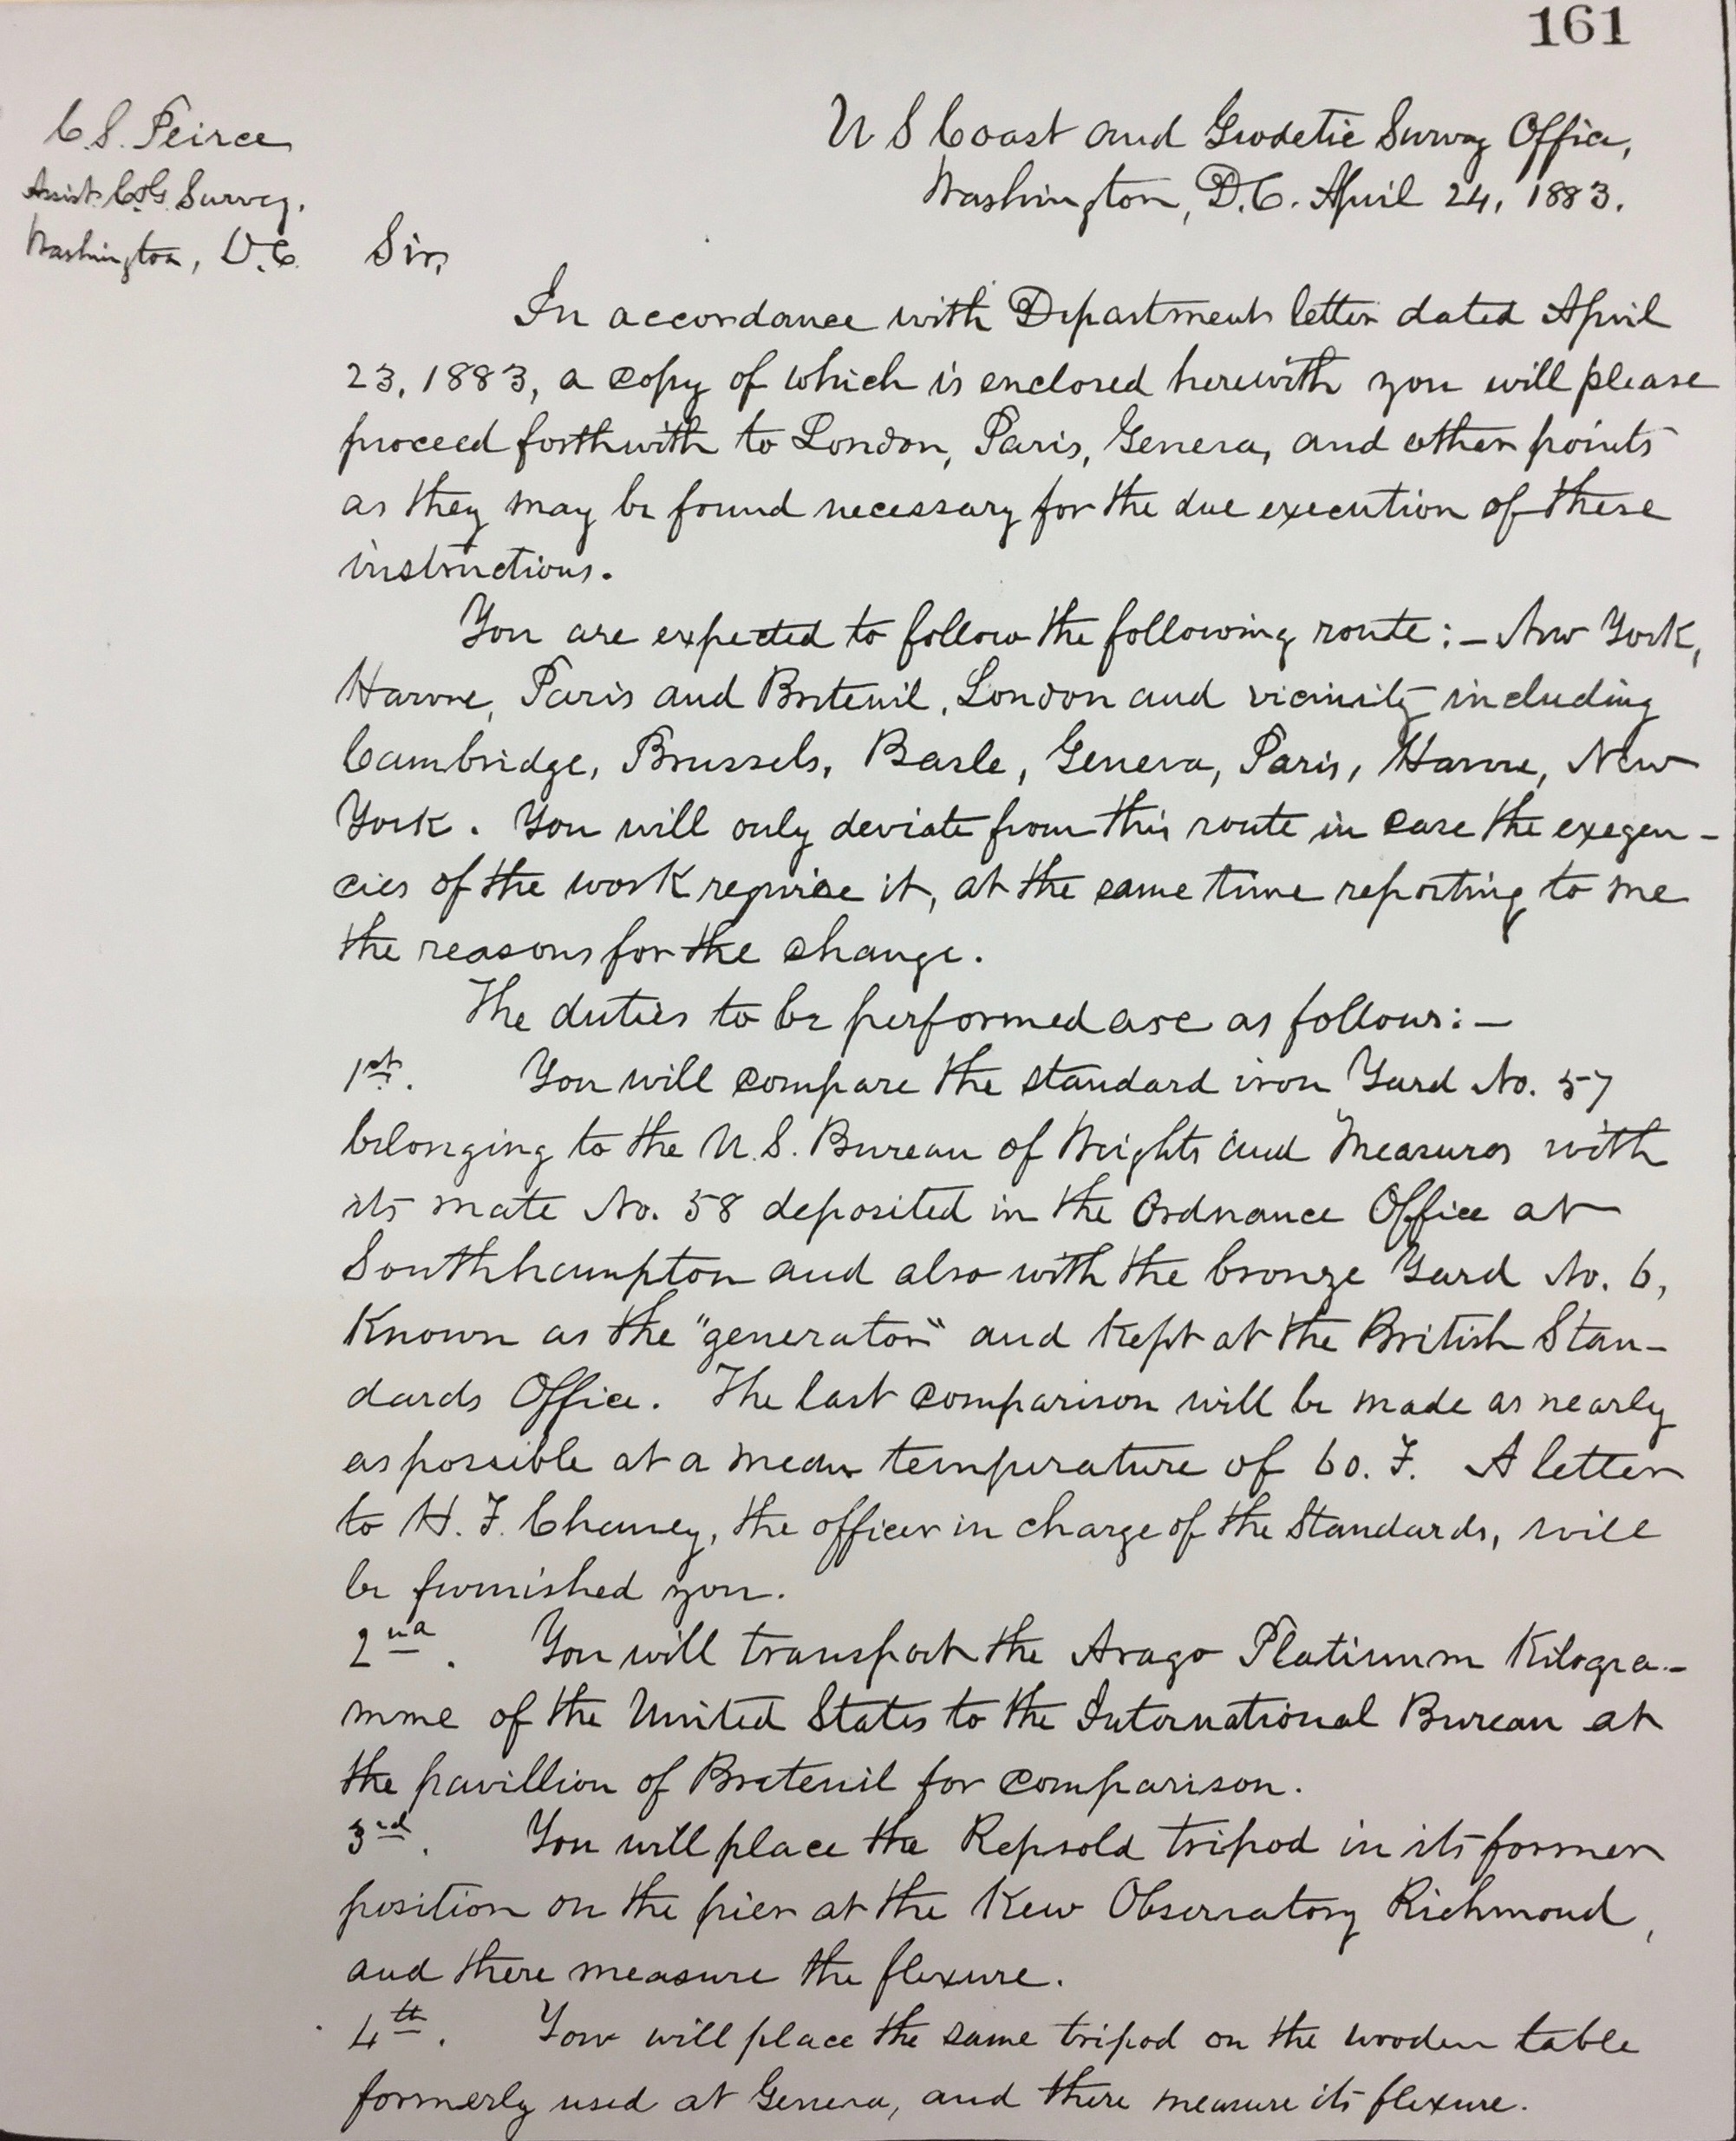 161
C.S. Peirce
Assist. C.&G. Survey.
Washington, D.C.
U S Coast and Geodetic Survey Office,
Washington, D.C. April 24, 1883.
Sir,
In accordance with Department letter dated April
23, 1883, a copy of which is enclosed herewith you will please
proceed forthwith to London, Paris, Geneva, and other points
as they may be found necessary for the due execution of these
instructions.
You are expected to follow the following route:— New York,
Havre, Paris and Breteuil, London and vicinity including
Cambridge, Brussels, Basle, Geneva, Paris, Havre, New
York. You will only deviate from this route in case the exegen-
cies of the work require it, at the same time reporting to me
the reasons for the change.
The duties to be performed are as follows:—
1st. You will compare the standard iron Yard No. 57
belonging to the U.S. Bureau of Weights and Measures with
its mate No. 58 deposited in the Ordnance Office at
Southhampton and also with the bronze Yard No. 6,
Known as the "generator" and kept at the British Stan-
dards Office. The last comparison will be made as nearly
as possible at a mean temperature of 60. F. A letter
to H. F. Chaney, the officer in charge of the Standards, will
be furnished you.
2nd. You will transport the Arago Platinum Kilogra-
mme of the United States to the International Bureau at
the pavillion of Breteuil for comparison.
3rd. You will place the Repsold tripod in its former
position on the pier at the Kew Observatory Richmond,
and there measure the flexure.
4th. You will place the same tripod on the wooden table
formerly used at Geneva, and there measure its flexure.